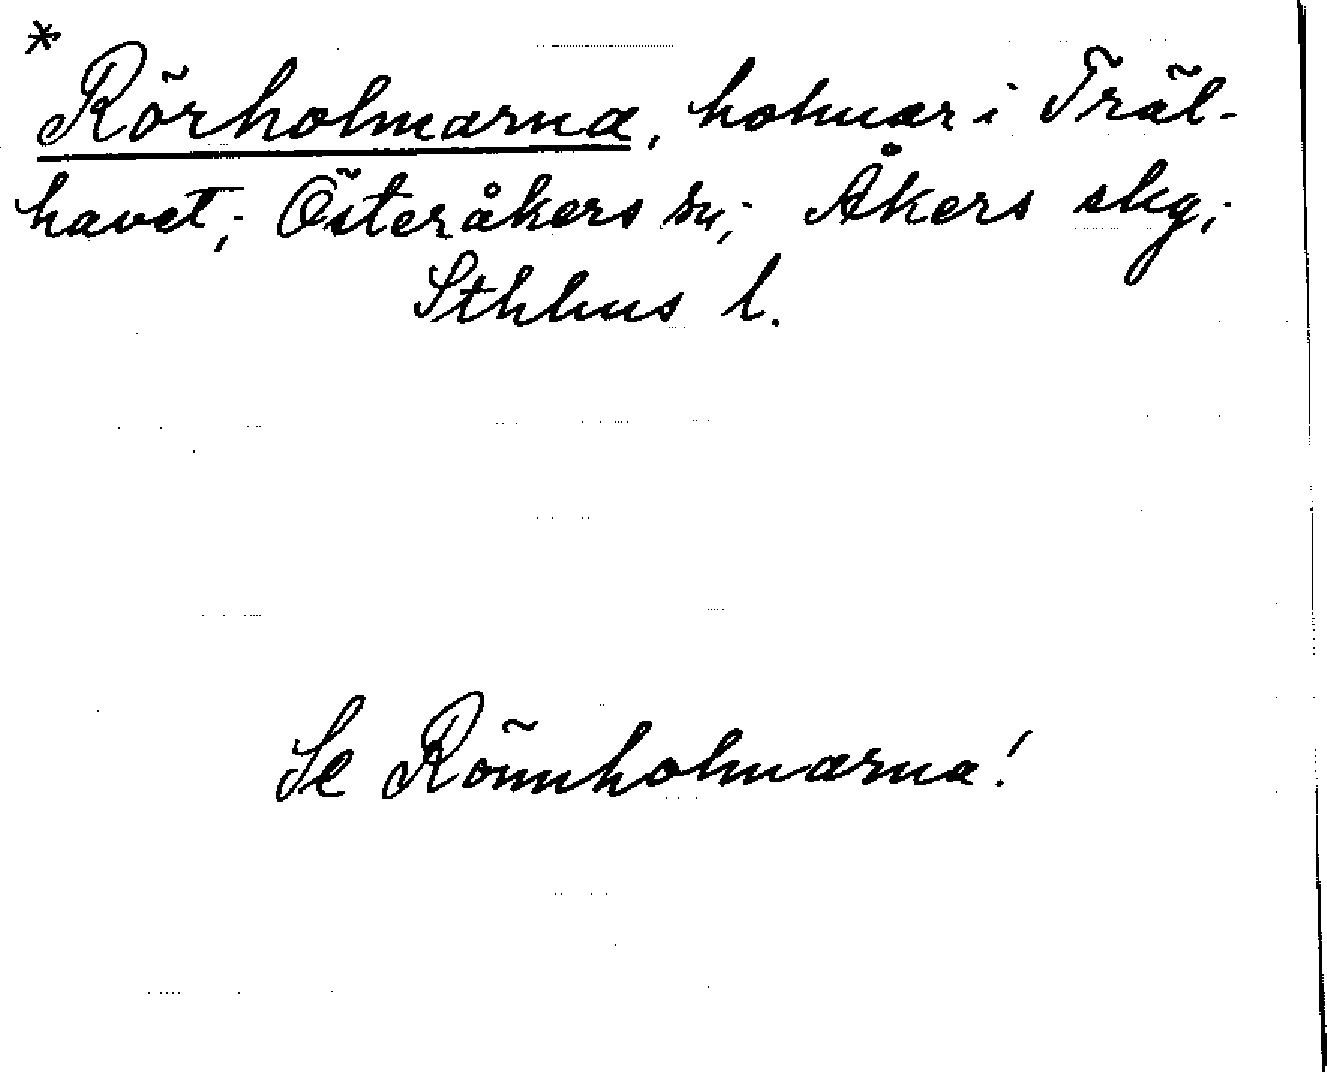 * Rörholmarna, holmar i Träl-
havet; Österåkers sn; Åkers skg;
Sthlms l.
Se Rönnholmarna!